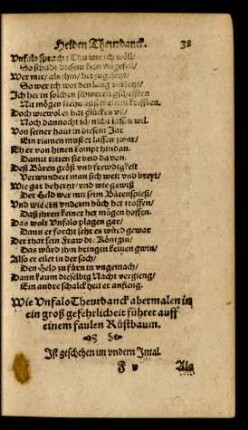 Helden Thewrdanck. 38
Vnfalo sprach: Thu wie ich wöll/
So schadt diesem
Wer mir/ als ihm/
So wer ich vor den lang verletzt/
Ich her in solchen schweren gschefften
Nit mögen
Doch wiewol er hat glückes vil
Noch dannocht ich nicht lassen wil
Von seiner haut in diesem Jar
Ein riemen muß er lassen zwar/
Eh er von hinen kompt hindan.
Damit ritten sie beid davon.
Deß Bären größ vnd frewdigkeit
Verwundert man sich weit vnd breyt/
Wie gar behertzt/ vnd wie gewiß
Der Held wer mit dem Bärenspieß/
Vnd wie ern vnderm büch het troffen/
Daß ihren keiner het mögen hoffen.
Das wolt Vnfalo plagen gar/
Dann er forcht
Der thet sein Fraw di Königin/
Das würd ihm bringen keinen gwin/
Also er eilet in der sach/
Den Held zu fürn in vngemach/
Dann kaum dieselbig Nacht vergieng/
Ein andre schalckheit er anfieng.
Wie Vnfalo Thewrdanck abermalen in
ein groß gefehrlicheit führet auff
einem faulen Rüstbaum.
Ist geschehen im vndern Intal.
F v Als